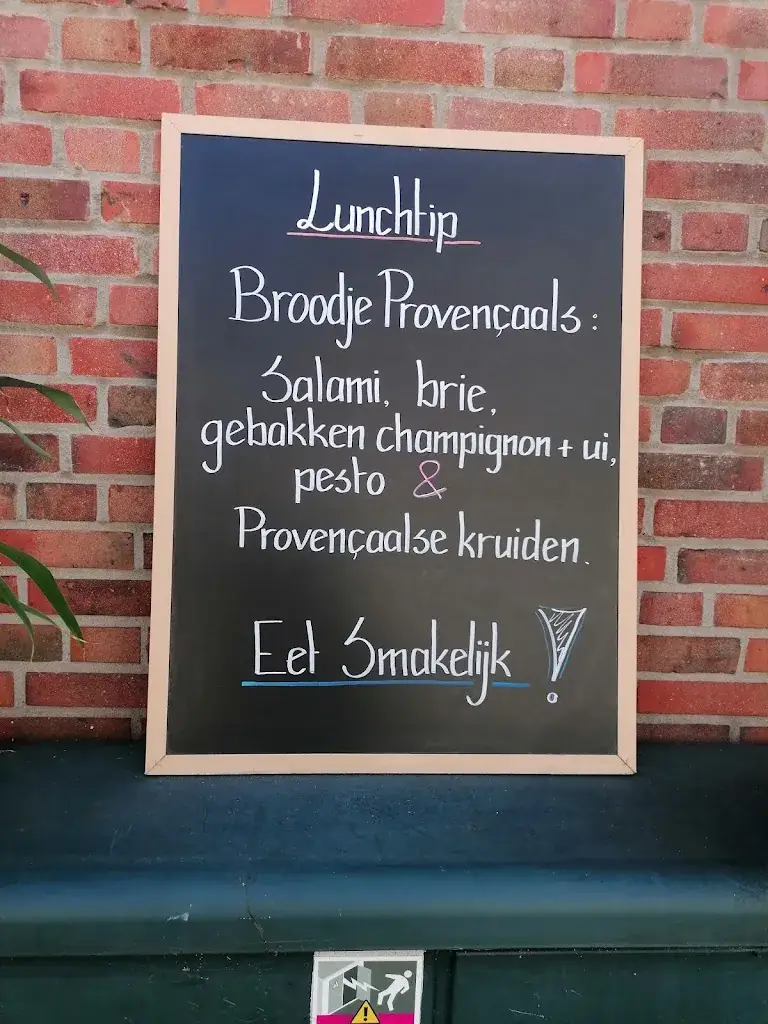 Lunchtip
Broodje Provençaals:
Salami, brie,
gebakken champignon + ui,
pesto &
Provençaalse kruiden.
Eet Smakelijk !